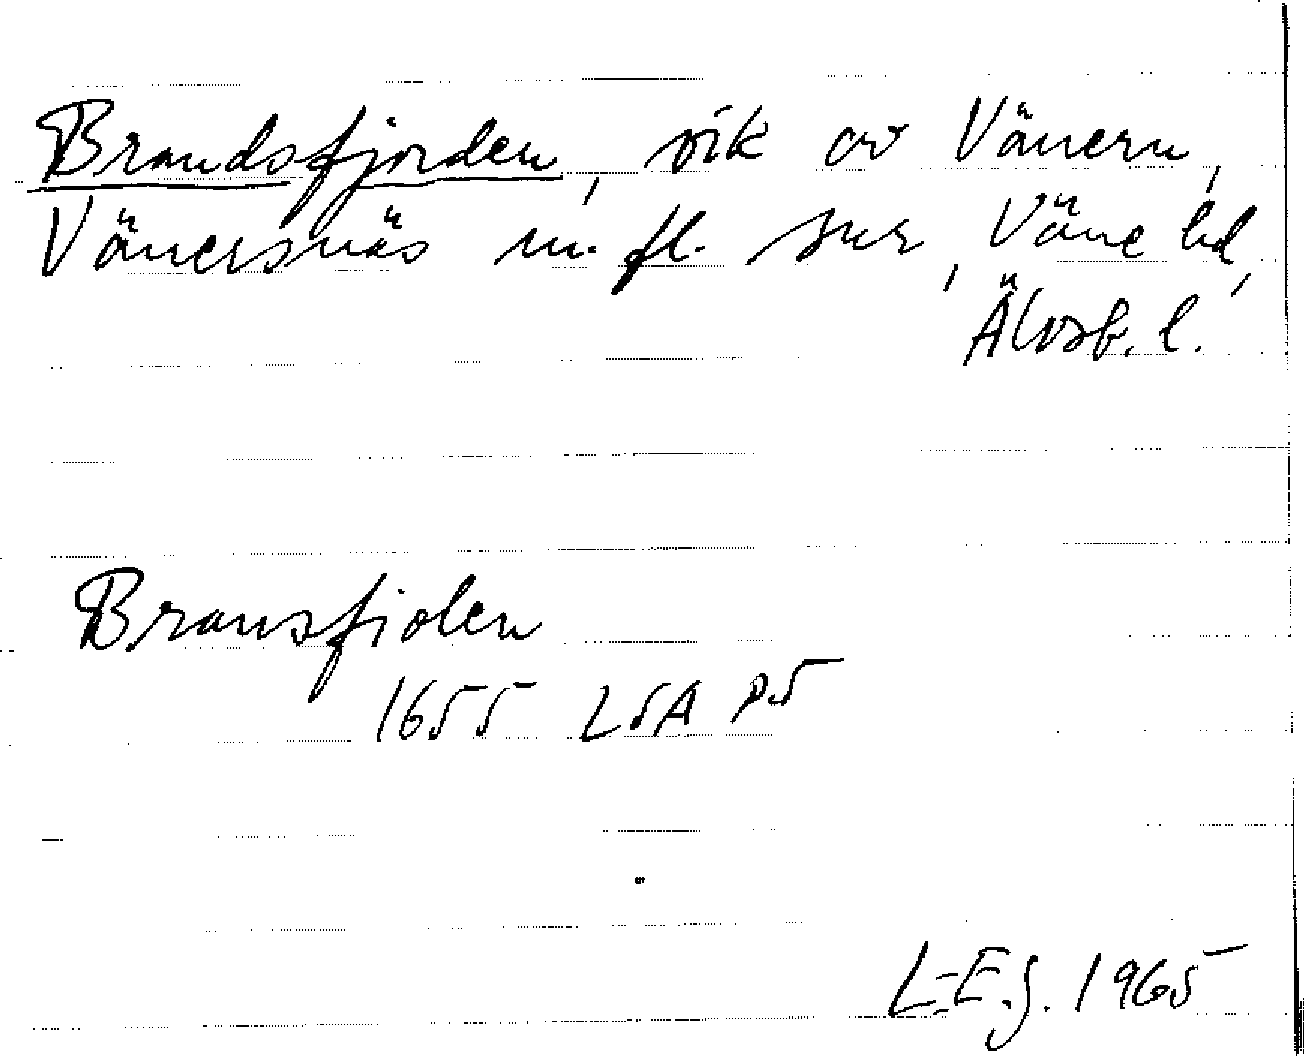 Brandsfjorden, vik av Vänern,
Vänersnäs m. fl. snr, Väne hd,
Älvsb. l.
Bransfiolen
1655 LSA P5
L-E.J. 1965